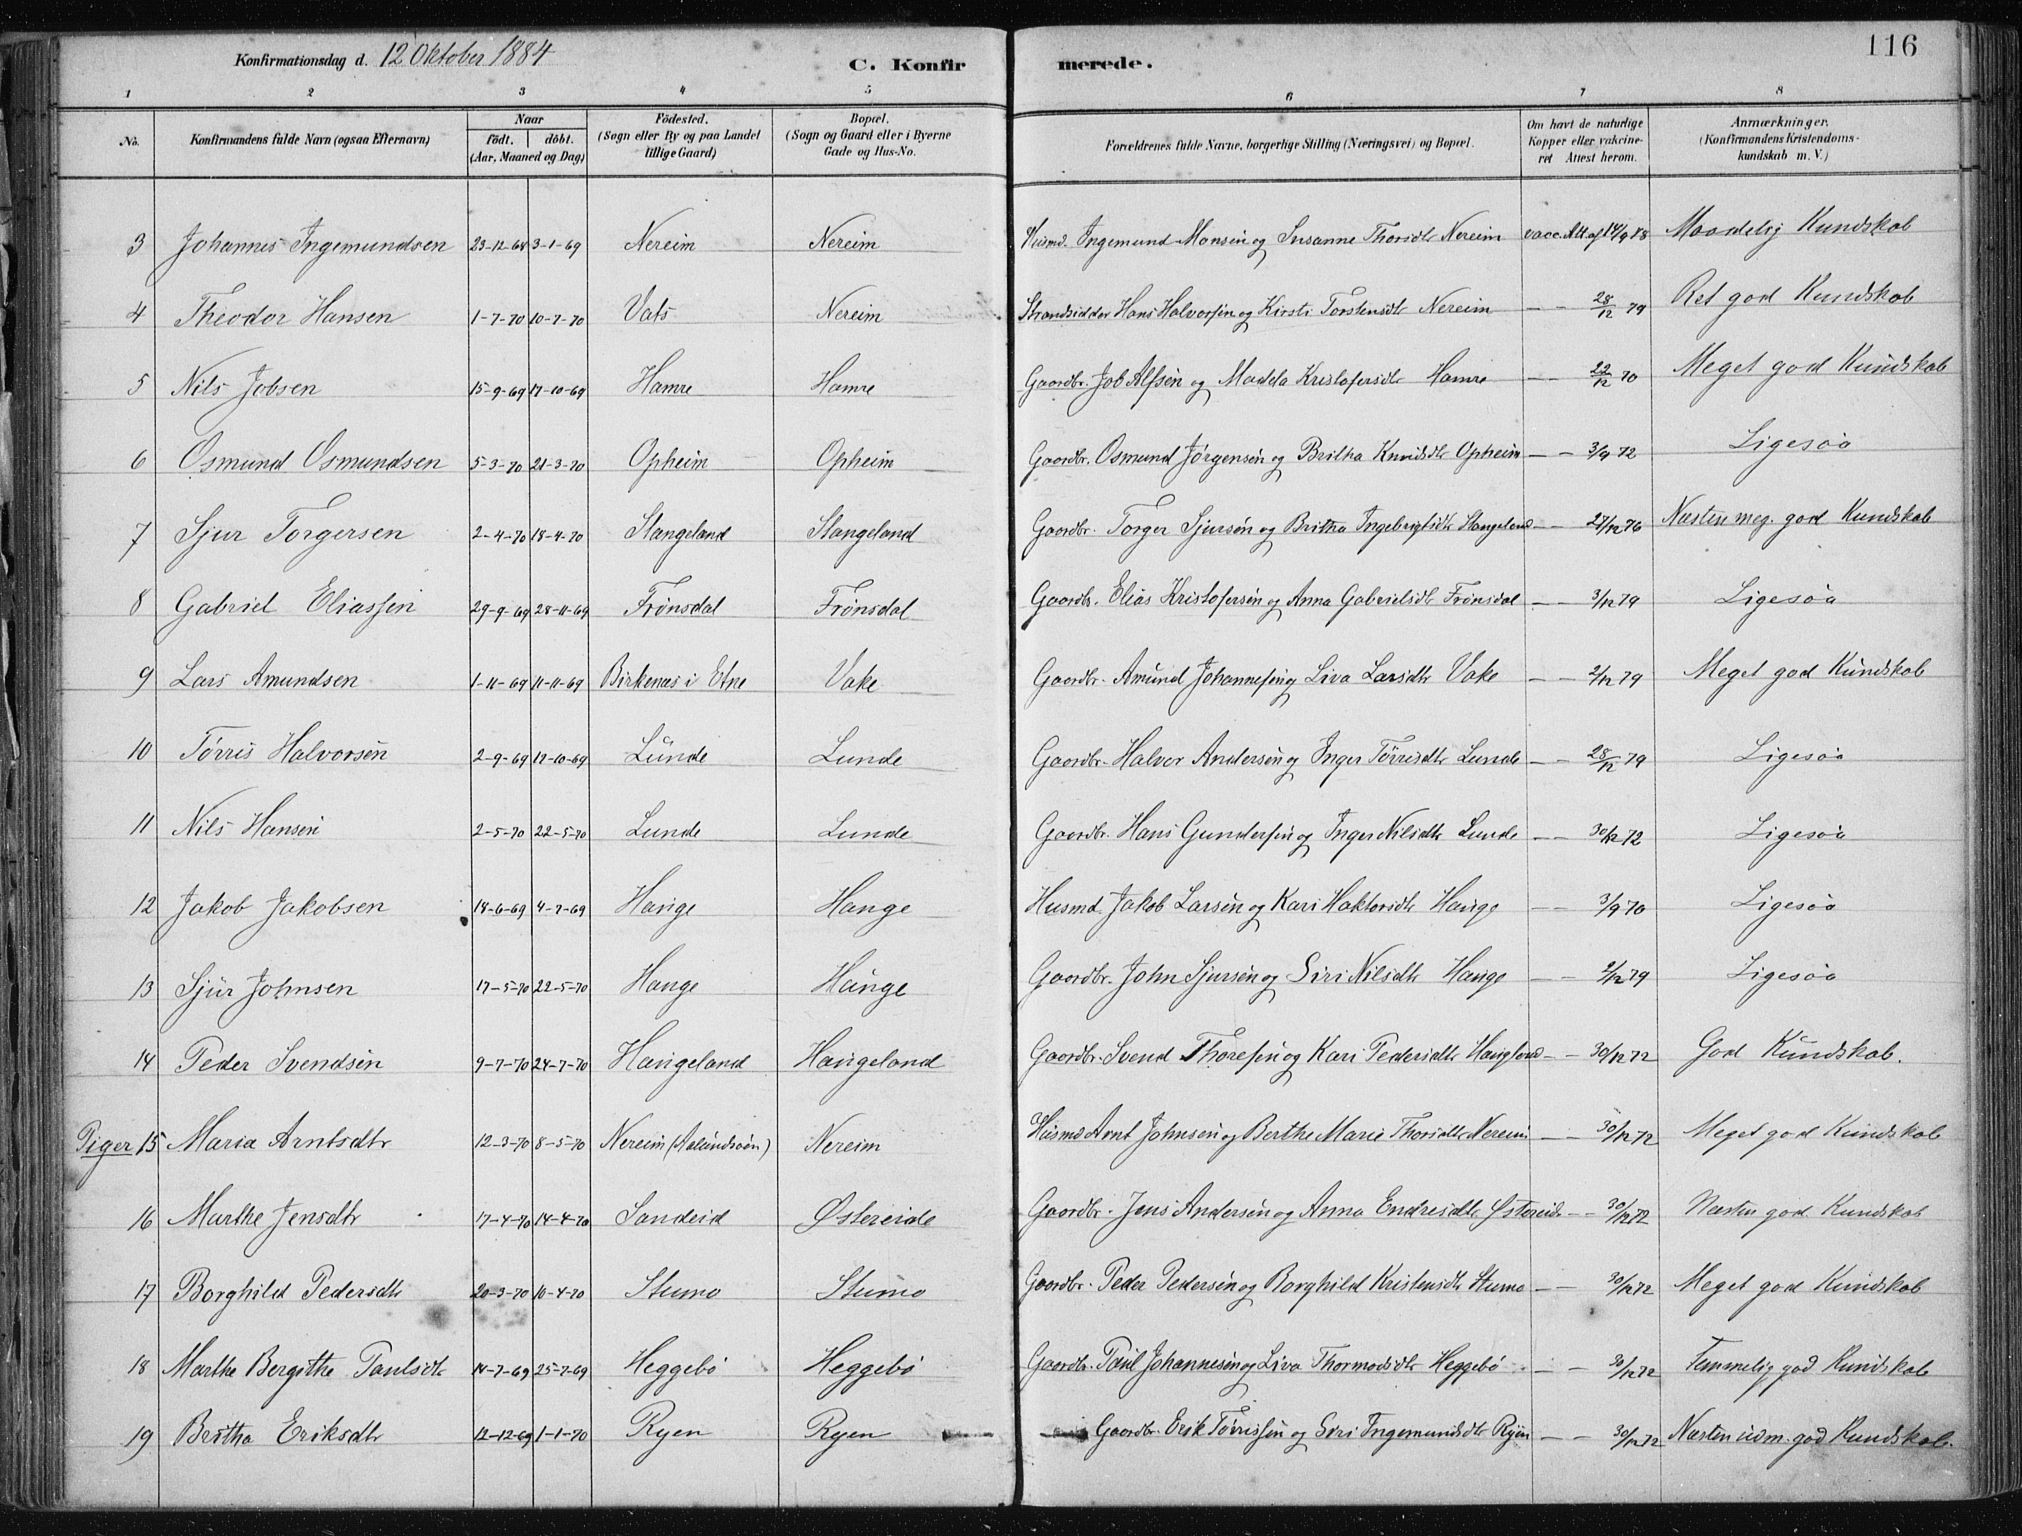 116
Konfirmationsdag d. 12 Oktober 1884 C. Konfirmerede.
1 2 3 4 5 6 7 8
No. Konfirmandens fulde Navn (ogsaa Efternavn) Naar født. døbt. (Aar, Maaned og Dag) Fødested. (Sogn eller By og paa Landet tillige Gaard) Bopæl. (Sogn og Gaard eller i Byerne Gade og Hus-No. Forældrenes fulde Navne, borgerlige Stilling (Næringsvei) og Bopæl. Om havt de naturlige Kopper eller vakcineret Attest herom. Anmærkninger. (Konfirmandens Kristendomskundskab m. V.)
3 Johannes Ingemundsen 23-12-68 3-1-69 Nereim Nereim Husmd. Ingemund Monsen og Susanne Thorsdtr Nereim vacc. Att. af Maadelig Kundskab
4 Theodor Hansen 1-7-70 10-7-70 Vats Nereim Strandsidder Hans Halvorsen og Kirsti Torstensdtr Nereim — — 28/12 79 Ret god Kundskab
5 Nils Jobsen 15-9-69 17-10-69 Hamre Hamre Gaardbr. Job Alfsen og Madda Kristofersdtr Hamre — — 22/12 70 Meget god Kundskab
6 Osmund Osmundsen 5-3-70 21-3-70 Opheim Opheim Gaardbr. Osmund Jørgensen og Britha Knudsdtr Opheim — — 3/9 72 Ligesøa
7 Sjur Torgersen 2-4-70 18-4-70 Stangeland Stangeland Gaardbr. Torger Sjursen og Britha Ingebrigtsdtr Stangeland — — 27/12 76 Næsten meg. god Kundskab
8 Gabriel Eliassen 29-9-69 28-11-69 Frønsdal Frønsdal Gaardbr. Elias Kristofersen og Anna Gabrielsdtr Frønsdal — — 3/12 79 Ligesøa
9 Lars Amundsen 1-11-69 11-11-69 Birkenæs i Etne Vake Gaardbr. Amund Johannesen og Liva Larsdtr Vake — — 2/12 79 Meget god Kundskab
10 Tørris Halvorsen 2-9-69 17-10-69 Lunde Lunde Gaardbr. Halvor Andersen og Inger Tørrisdtr Lunde — — 28/12 79 Ligesøa
11 Nils Hansen 2-5-70 22-5-70 Lunde Lunde Gaardbr. Hans Gundersen og Inger Nilsdtr Lunde — — 30/12 72 Ligesøa
12 Jakob Jakobsen 18-6-69 4-7-69 Hauge Hauge Husmd. Jakob Larsen og Kari Haktorsdtr Hauge — — 3/9 70 Ligesøa
13 Sjur Johnsen 17-5-70 22-5-70 Hauge Hauge Gaardbr. John Sjursen og Siri Nilsdtr Hauge — — 2/12 79 Ligesøa
14 Peder Svendsen 9-7-70 24-7-70 Haugeland Haugeland Gaardbr. Svend Thoresen og Kari Pedersdtr Haugland — — 30/12 72 God Kundskab.
Piger 15 Maria Arntsdtr 12-3-70 8-5-70 Nereim (Aalundsøen) Nereim Husmd Arnt Johnsen og Berthe Marie Thorsdtr Nereim — — 30/12 72 Meget god Kundskab
16 Marthe Jensdtr 17-4-70 14-4-70 Sandeid Østereide Gaardbr. Jens Andersen og Anna Endresdtr Østereide — — 30/12 72 Næsten god Kundskab
17 Borghild Pedersdtr 20-3-70 10-4-70 Stumo Stumo Gaardbr. Peder Pedersen og Borghild Kristensdtr Stumo — — 30/12 72 Meget god Kundskab
18 Marthe Bergithe Paulsdtr 14-7-69 25-7-69 Heggebø Heggebø Gaardbr. Paul Johannesen og Liva Thormodsdtr Heggebø — — 30/12 72 Temmelig god Kundskab
19 Britha Eriksdtr 12-12-69 1-1-70 Ryen Ryen Gaardbr. Erik Tørrissen og Siri Ingemundsdtr Ryen — — 30/12 72 Næsten udm. god Kundskab.